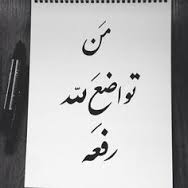 مَن
تواضعَ لله
رفعَه